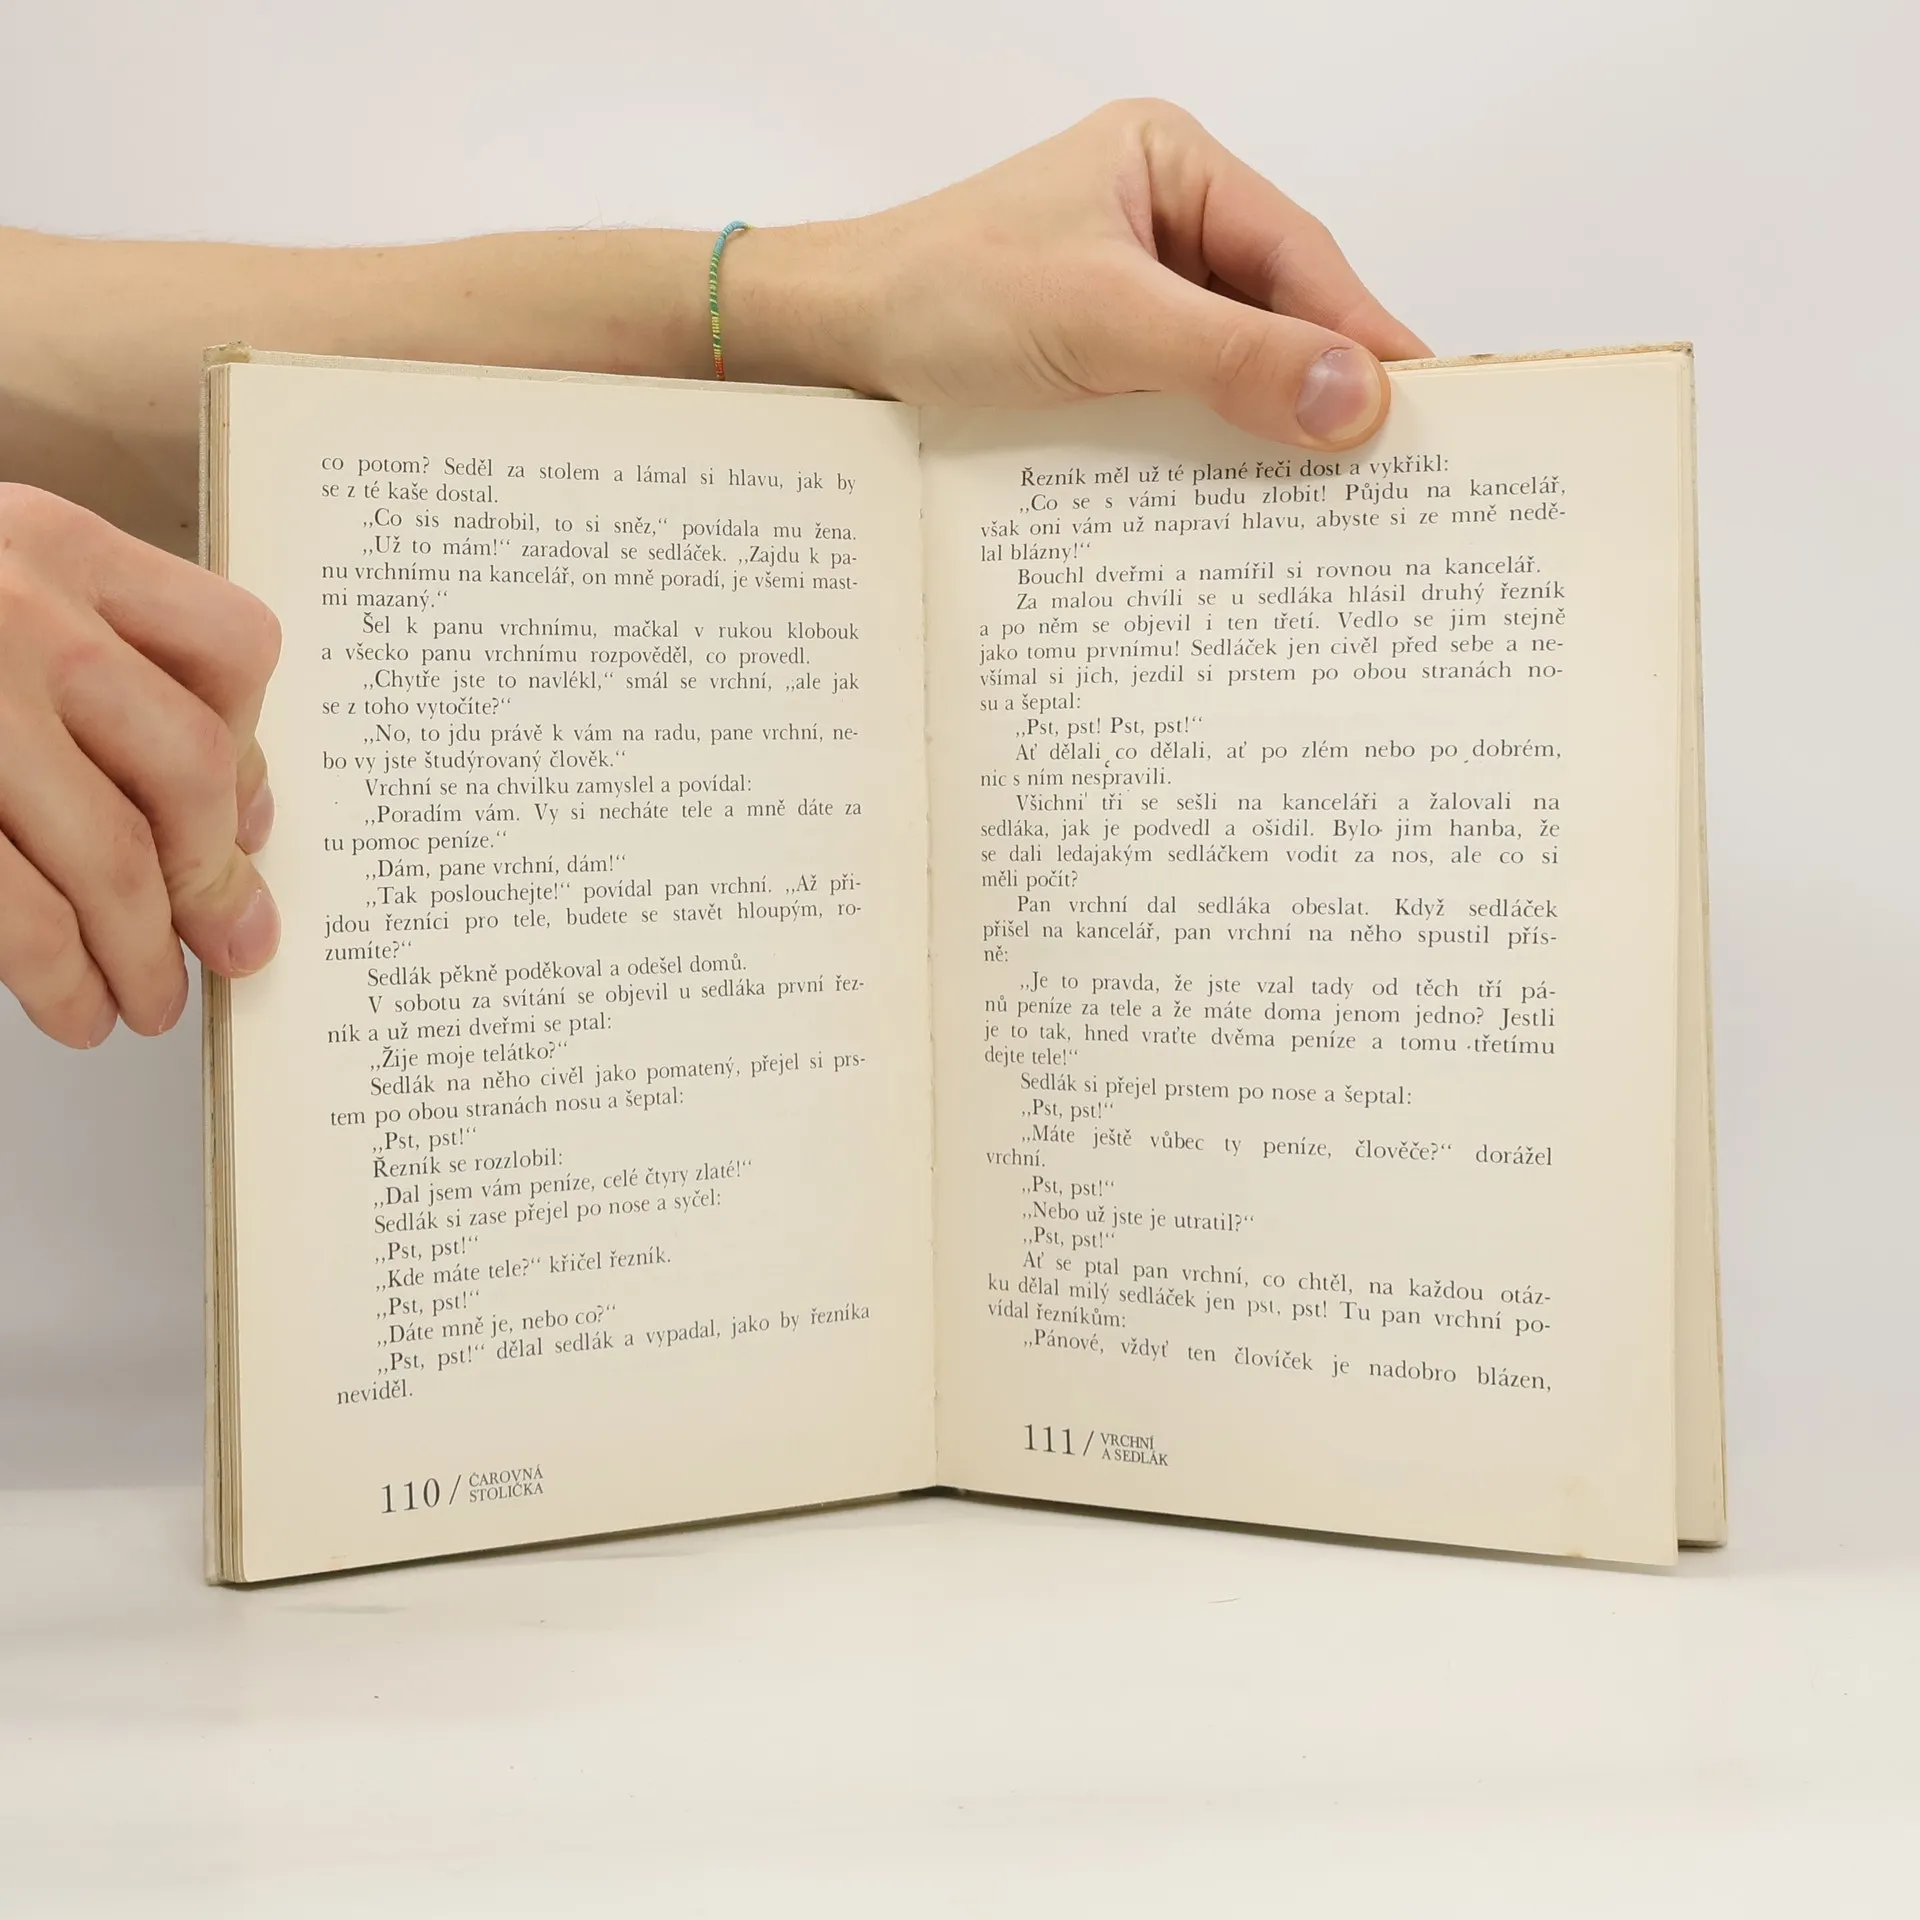 co potom? Seděl za stolem a lámal si hlavu, jak by
se z té kaše dostal.
„Co sis nadrobil, to si sněz,“ povídala mu žena.
„Už to mám!“ zaradoval se sedláček. „Zajdu k pa-
nu vrchnímu na kancelář, on mně poradí, je všemi mast-
mi mazaný.“
Šel k panu vrchnímu, mačkal v rukou klobouk
a všecko panu vrchnímu rozpověděl, co provedl.
„Chytře jste to navlékl,“ smál se vrchní, „ale jak
se z toho vytočíte?“
„No, to jdu právě k vám na radu, pane vrchní, ne-
bo vy jste študýrovaný člověk.“
Vrchní se na chvilku zamyslel a povídal:
„Poradím vám. Vy si necháte tele a mně dáte za
tu pomoc peníze.“
„Dám, pane vrchní, dám!“
„Tak poslouchejte!“ povídal pan vrchní. „Až při-
jdou řezníci pro tele, budete se stavět hloupým, ro-
zumíte?“
Sedlák pěkně poděkoval a odešel domů.
V sobotu za svítání se objevil u sedláka první řez-
ník a už mezi dveřmi se ptal:
„Žije moje telátko?“
Sedlák na něho civěl jako pomatený, přejel si prs-
tem po obou stranách nosu a šeptal:
„Pst, pst!“
Řezník se rozzlobil:
„Dal jsem vám peníze, celé čtyry zlaté!“
Sedlák si zase přejel po nose a syčel:
„Pst, pst!“
„Kde máte tele?“ křičel řezník.
„Pst, pst!“
„Dáte mně je, nebo co?“
„Pst, pst!“ dělal sedlák a vypadal, jako by řezníka
neviděl.
110 / ČAROVNÁ
STOLIČKA
Řezník měl už té plané řeči dost a vykřikl:
„Co se s vámi budu zlobit! Půjdu na kancelář,
však oni vám už napraví hlavu, abyste si ze mně nedě-
lal blázny!“
Bouchl dveřmi a namířil si rovnou na kancelář.
Za malou chvíli se u sedláka hlásil druhý řezník
a po něm se objevil i ten třetí. Vedlo se jim stejně
jako tomu prvnímu! Sedláček jen civěl před sebe a ne-
všímal si jich, jezdil si prstem po obou stranách no-
su a šeptal:
„Pst, pst! Pst, pst!“
Ať dělali co dělali, ať po zlém nebo po dobrém,
nic s ním nespravili.
Všichni tři se sešli na kanceláři a žalovali na
sedláka, jak je podvedl a ošidil. Bylo jim hanba, že
se dali ledajakým sedláčkem vodit za nos, ale co si
měli počít?
Pan vrchní dal sedláka obeslat. Když sedláček
přišel na kancelář, pan vrchní na něho spustil přís-
ně:
„Je to pravda, že jste vzal tady od těch tří pá-
nů peníze za tele a že máte doma jenom jedno? Jestli
je to tak, hned vraťte dvěma peníze a tomu třetímu
dejte tele!“
Sedlák si přejel prstem po nose a šeptal:
„Pst, pst!“
„Máte ještě vůbec ty peníze, člověče?“ dorážel
vrchní.
„Pst, pst!“
„Nebo už jste je utratil?“
„Pst, pst!“
Ať se ptal pan vrchní, co chtěl, na každou otáz-
ku dělal milý sedláček jen pst, pst! Tu pan vrchní po-
vídal řezníkům:
„Pánové, vždyť ten človíček je nadobro blázen,
111 / VRCHNÍ
A SEDLÁK